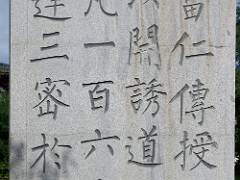 當仁傳授
開誘道
凡一百六
達三密於